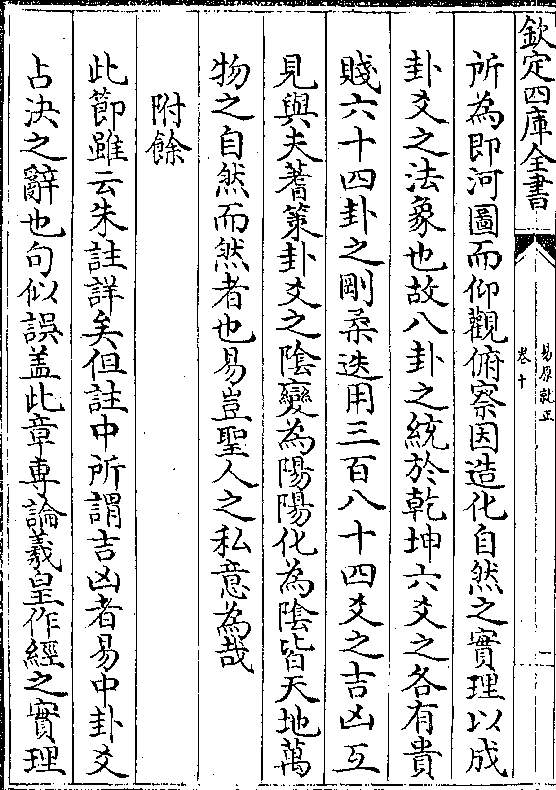 欽定四庫全書
易原就正
卷十
一
所為即河圖而仰觀俯察因造化自然之實理以成
卦爻之法象也故八卦之統於乾坤六爻之各有貴
賤六十四卦之剛柔迭用三百八十四爻之吉凶互
見與夫蓍策卦爻之陰變為陽陽化為陰皆天地萬
物之自然而然者也易豈聖人之私意為哉
附餘
此節雖云朱註詳矣但註中所謂吉凶者易中卦爻
占決之辭也句似誤盖此章專論羲皇作經之實理